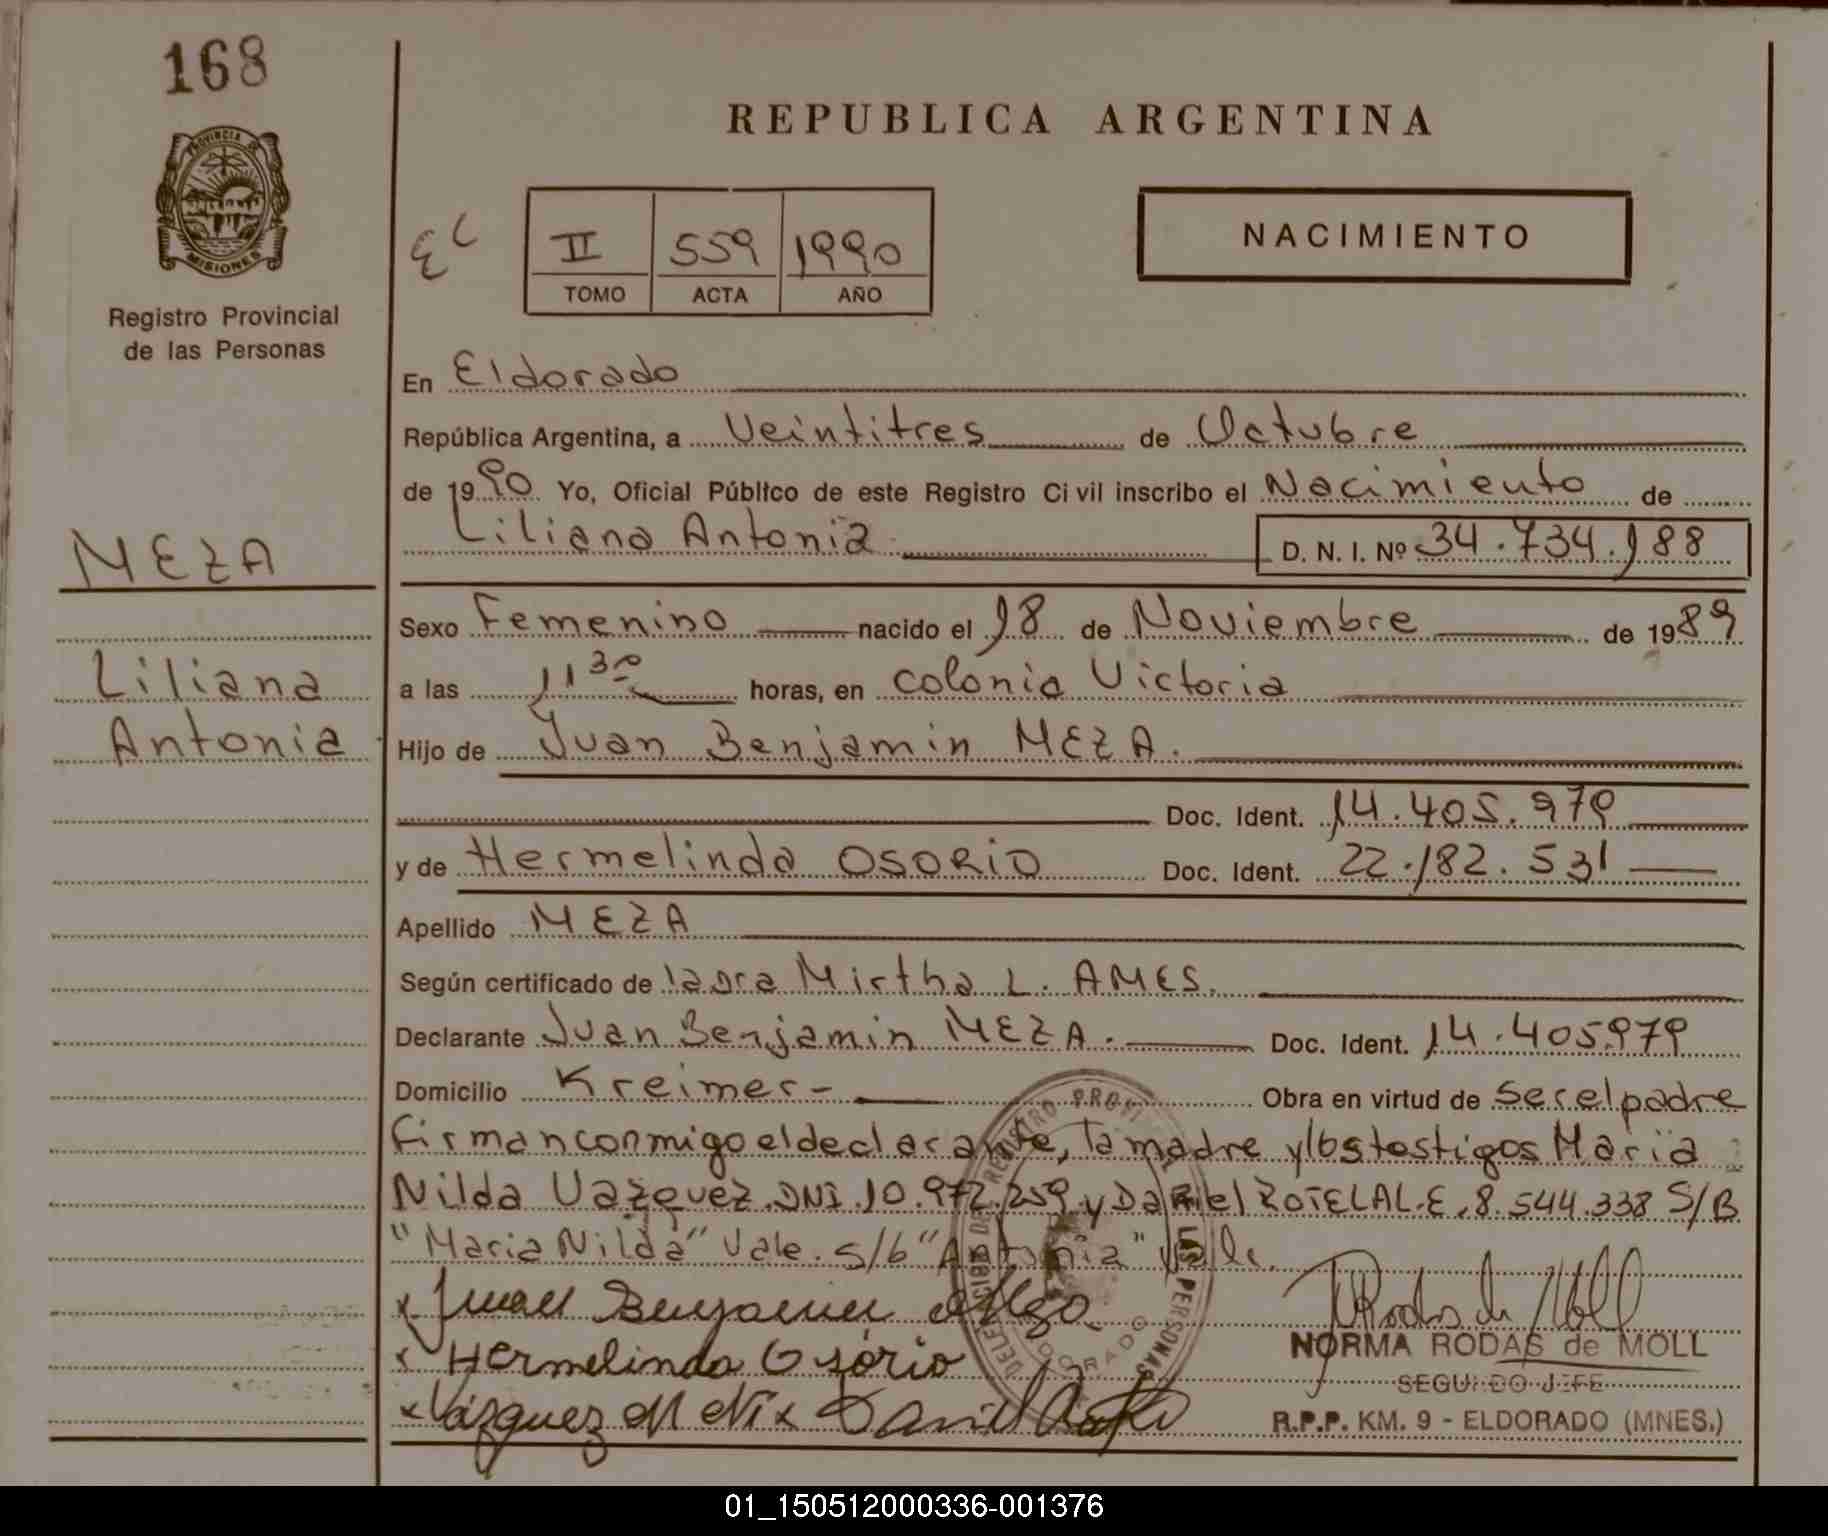 168
REPUBLICA ARGENTINA
PROVINCIA DE
MISIONES
Registro Provincial
de las Personas
II 559 1990
TOMO ACTA AÑO
NACIMIENTO
En Eldorado
República Argentina, a Veintitres de Octubre
de 1990 Yo, Oficial Público de este Registro Civil inscribo el Nacimiento de
Liliana Antonia D. N. I. Nº 34.734.188
MEZA
Liliana
Antonia
Sexo Femenino nacido el 18 de Noviembre de 1989
a las 11 30 horas, en Colonia Victoria
Hijo de Juan Benjamin MEZA.
Doc. Ident. 14.405.979
y de Hermelinda OSORIO Doc. Ident. 22.182.531
Apellido MEZA
Según certificado de la Dra Mirtha L. AMES.
Declarante Juan Benjamin MEZA. Doc. Ident. 14.405979
Domicilio Kreimer- Obra en virtud de ser el padre
firman conmigo el declarante, la madre y los testigos Maria
Nilda Vazquez. DNI. 10.972.259 y Daniel ZOTELA L.E. 8.544.338 S/B
"Maria Nilda" Vale. S/b "Antonia" Vale.
x Juan Benjamin Meza
x Hermelinda Osorio
x Vázquez M N x Daniel
NORMA RODAS de MOLL
SEGUNDO JEFE
R.P.P. KM. 9 - ELDORADO (MNES.)
01_150512000336-001376